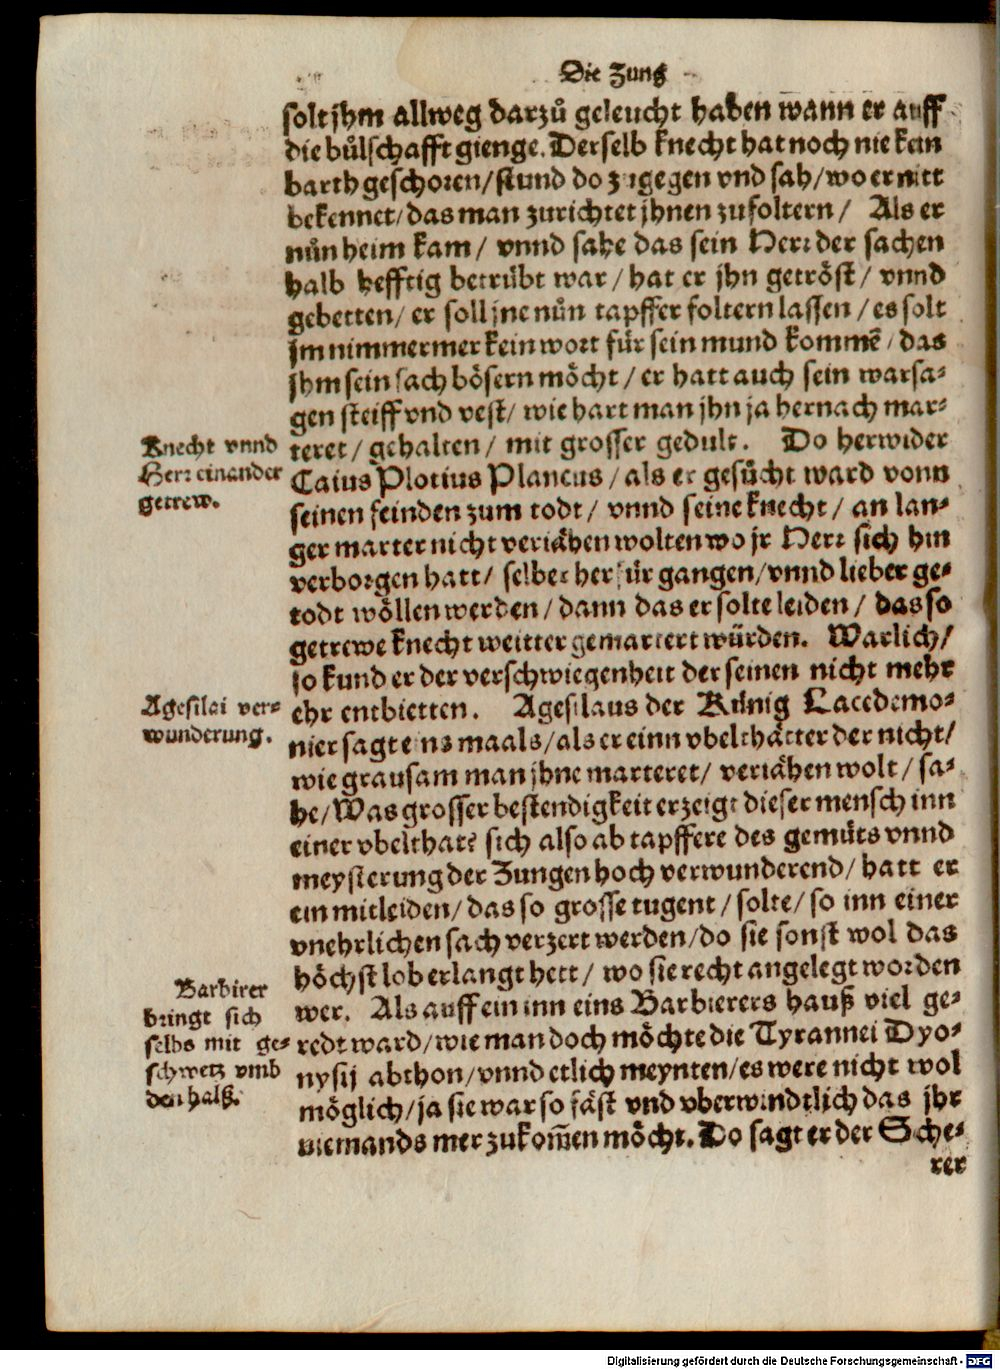 Die Zung
solt jhm allweg darzů geleucht haben wann er auff
die bůlschafft gienge. Derselb knecht hat noch nie kein
barth geschoren / stund do zugegen vnd sah / wo er nitt
bekennet / das man zurichtet jhnen zufoltern / Als er
nůn heim kam / vnnd sahe das sein Herr der sachen
halb hefftig betrübt war / hat er jhn getröst / vnnd
gebetten / er soll jne nůn tapffer foltern lassen / es solt
jm nimmermer kein wort für sein mund kommē / das
jhm sein sach bösern möcht / er hatt auch sein warsa-
gen steiff vnd vest / wie hart man jhn ja hernach mar-
Knecht vnnd
Herr einander
getrew.
teret / gehalten / mit grosser gedult. Do herwider
Caius Plotius Plancus / als er gesůcht ward vonn
seinen feinden zum todt / vnnd seine knecht / an lan-
ger marter nicht veriähen wolten wo jr Herr sich hin
verborgen hatt / selber herfür gangen / vnnd lieber ge-
todt wöllen werden / dann das er solte leiden / das so
getrewe knecht weitter gemartert würden. Warlich /
so kund er der verschwiegenheit der seinen nicht mehr
Agesilai ver-
wunderung.
ehr entbietten. Agesilaus der Künig Lacedemo-
nier sagt eins maals / als er einn vbelthätter der nicht /
wie grausam man jhne marteret / veriähen wolt / sa-
he / Was grosser bestendigkeit erzeigt dieser mensch inn
einer vbelthat? sich also ab tapffere des gemüts vnnd
meysterung der Zungen hoch verwunderend / hatt er
ein mitleiden / das so grosse tugent / solte / so inn einer
vnehrlichen sach verzert werden / do sie sonst wol das
höchst lob erlangt hett / wo sie recht angelegt worden
Barbirer
bringt sich
selbs mit ge-
schwetz vmb
den halß.
wer. Als auff ein inn eins Barbierers hauß viel ge-
redt ward / wie man doch möchte die Tyrannei Dyo-
nysij abthon / vnnd etlich meynten / es were nicht wol
möglich / ja sie war so fäst vnd vberwindtlich das jhr
niemands mer zukom̄en möcht. Do sagt er der Sche-
rer
Digitalisierung gefördert durch die Deutsche Forschungsgemeinschaft - DFG